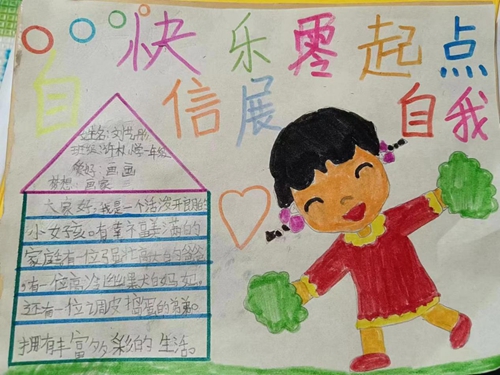 快乐零起点
自信展自我
姓名:刘艺彤
班级:许村小学一年级
爱好:画画
梦想:画家
大家好,我是一个活泼开朗的
小女孩。有幸福美满的
家庭,有一位强壮高大的爸爸
有一位高冷幽默的妈妈,
还有一位调皮捣蛋的弟弟。
拥有丰富多彩的生活。